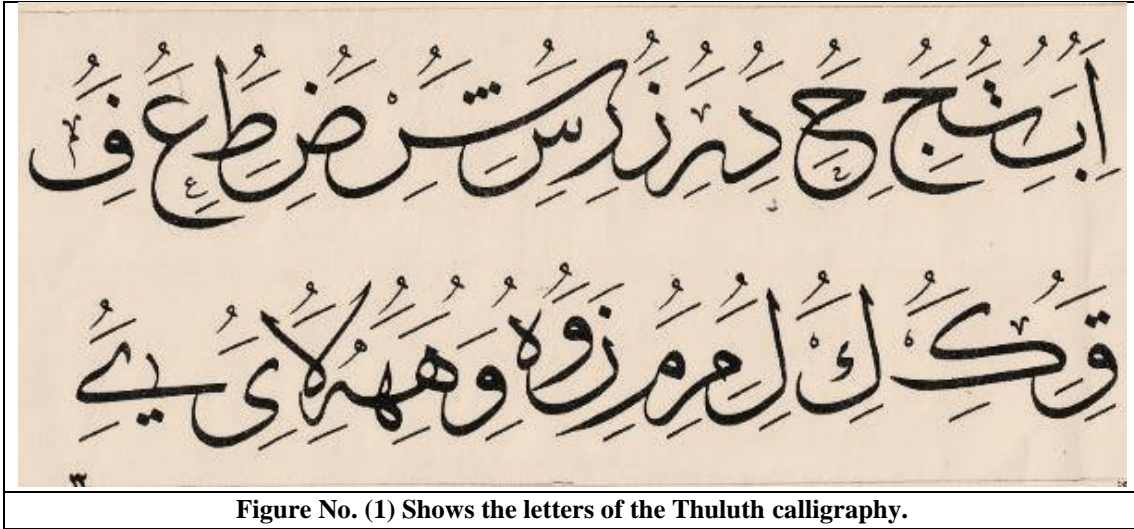 ا ب ت ج ح د ر ز ر س ش ض ط ع ف
ق ك ك ل م م ز و ه و ه ه لا ى ي
Figure No. (1) Shows the letters of the Thuluth calligraphy.